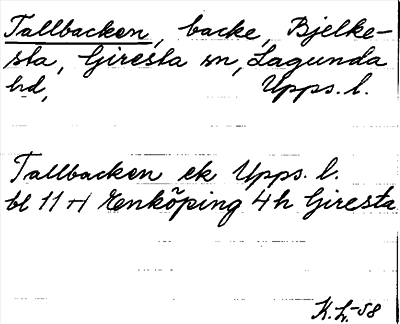 Tallbacken, backe, Bjelke-
sta, Giresta sn, Lagunda
hd, Upps. l.
Tallbacken ek Upps. l.
bl 11 Enköping 4h Giresta
K.L.-58